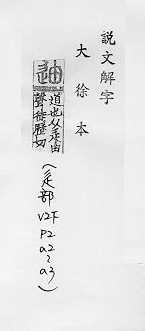 說文解字
大徐本
迪
道也从辵由
聲徒歷切
(辵部
V2下
P2
a2~
a3)